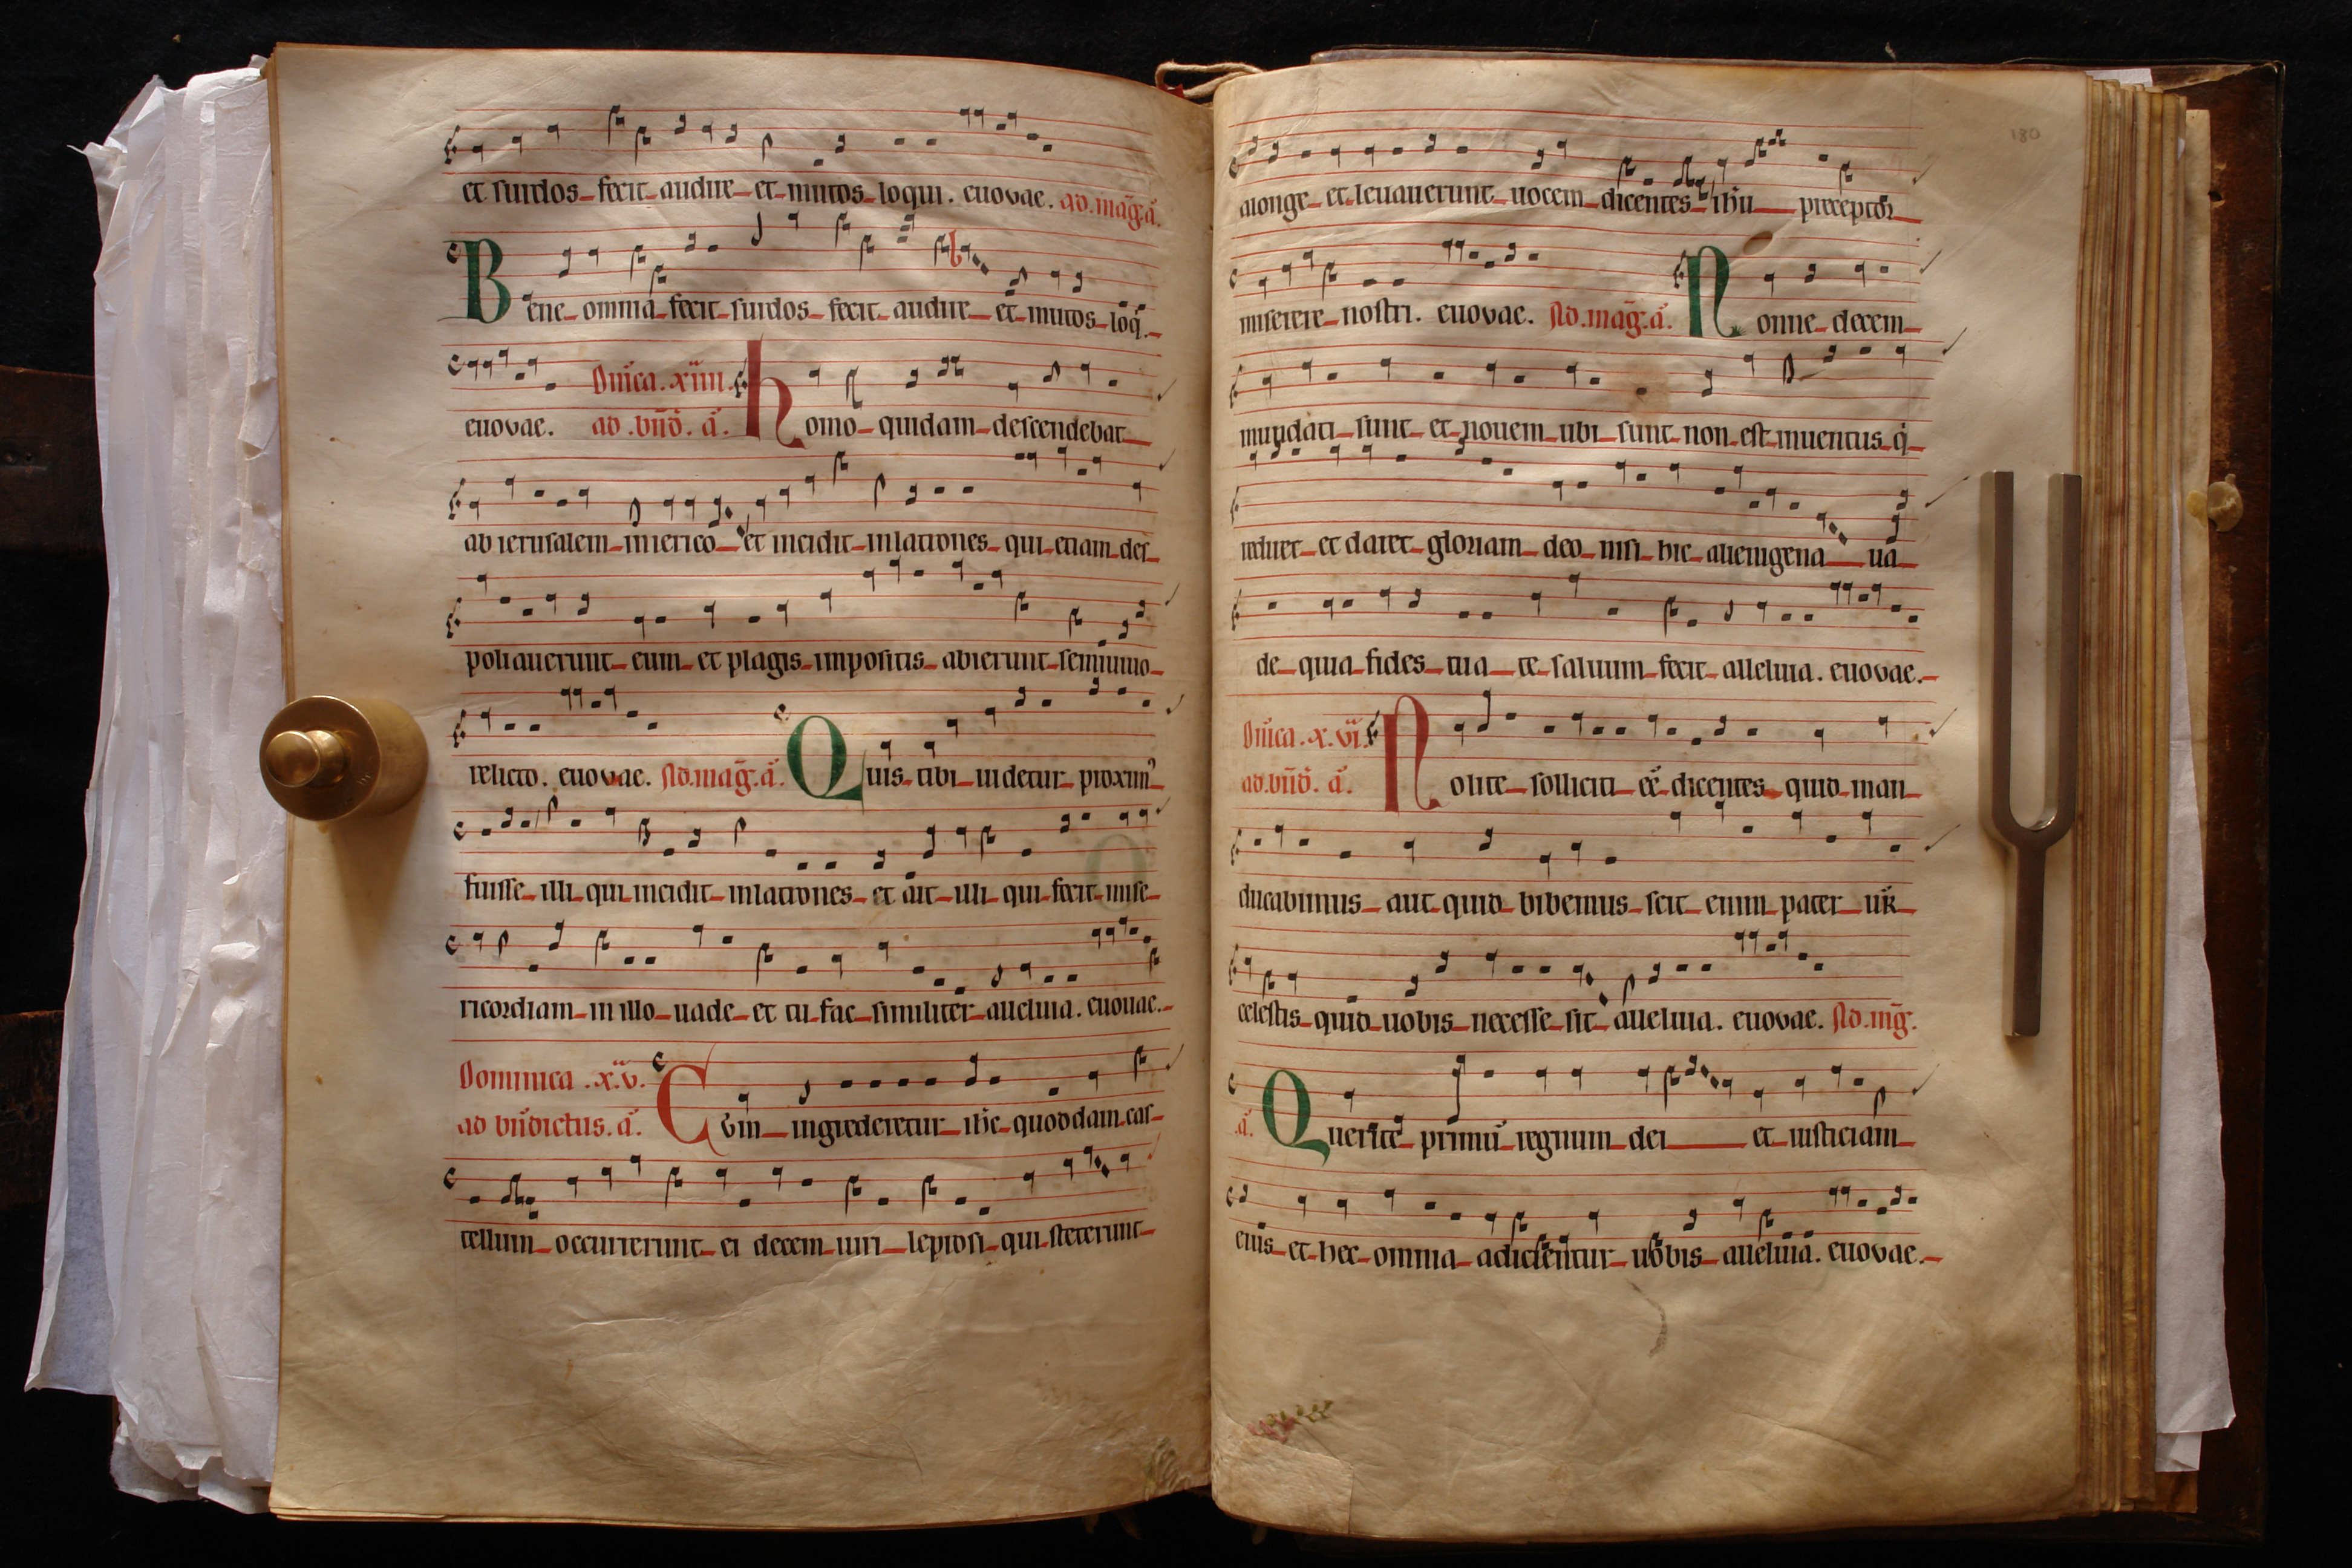 et surdos fecit audire et mutos loqui. euovae. ad.mag̃.a᷃.
Bene omnia fecit surdos fecit audire et mutos loq̇.
Dñica. xiiii.
euovae. ad.bñd̃. a᷃. Homo quidam descendebat
ab ierusalem in ierico et incidit in latrones qui etiam des
poliauerunt eum et plagis impositis abierunt semiuiuo
relicto. euovae. Ad.mag̃.a᷃. Quis tibi uidetur proximꝰ
fuisse illi qui incidit in latrones et ait illi qui fecit mise
ricordiam in illo uade et tu fac similiter alleluia. euouae.
Dominica .x.v.
ad bñdictus. a᷃. Cvm ingrederetur ihc̄ quoddam cas
tellum occurrerunt ei decem uiri leprosi qui steterunt
180
alonge et leuauerunt uocem dicentes ihū preceptor
miserere nostri. euovae. Ad.mag̃.a᷃. Nonne decem
mundati sunt et nouem ubi sunt non est inuentus q̇
rediret et daret gloriam deo nisi hic alienigena ua
de quia fides tua te saluum fecit alleluia. euovae.
Dñica .x.vi.
ad.bñd̃. a᷃. Nolite solliciti eē dicentes quid man
ducabimus aut quid bibemus scit enim pater ur̄
celestis quid uobis necesse sit alleluia. euovae. Ad.mg̃.
a᷃. Querite primū regnum dei et iusticiam
eius et hec omnia adicientur uobis alleluia. euovae.